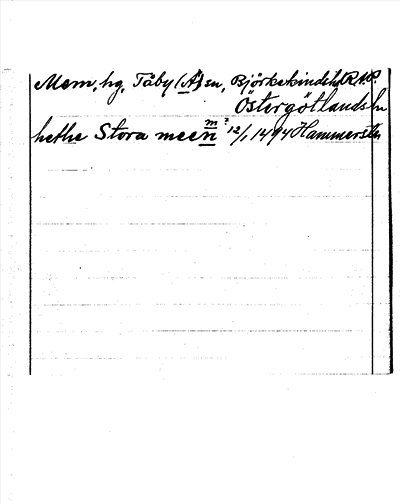 Mem, hg, Täby (Å) sn, Björkekinds hd R.Ap.
Östergötlands ln
hethe Stora meen m? 12/1 1494 Hammersta